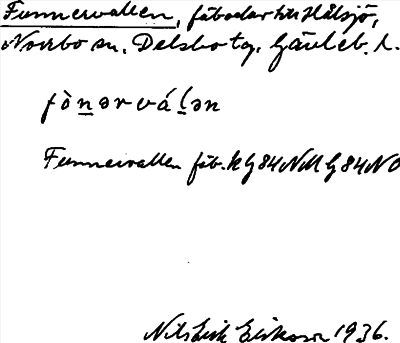 Funnervallen, fäbodar till Hålsjö,
Norrbo sn. Delsbo tg. Gävleb. l.
fȯ̀n̲ərvál̲ən
Funnervallen fäb. kG84NMG84NO
Nils Erik Eriksson 1936.